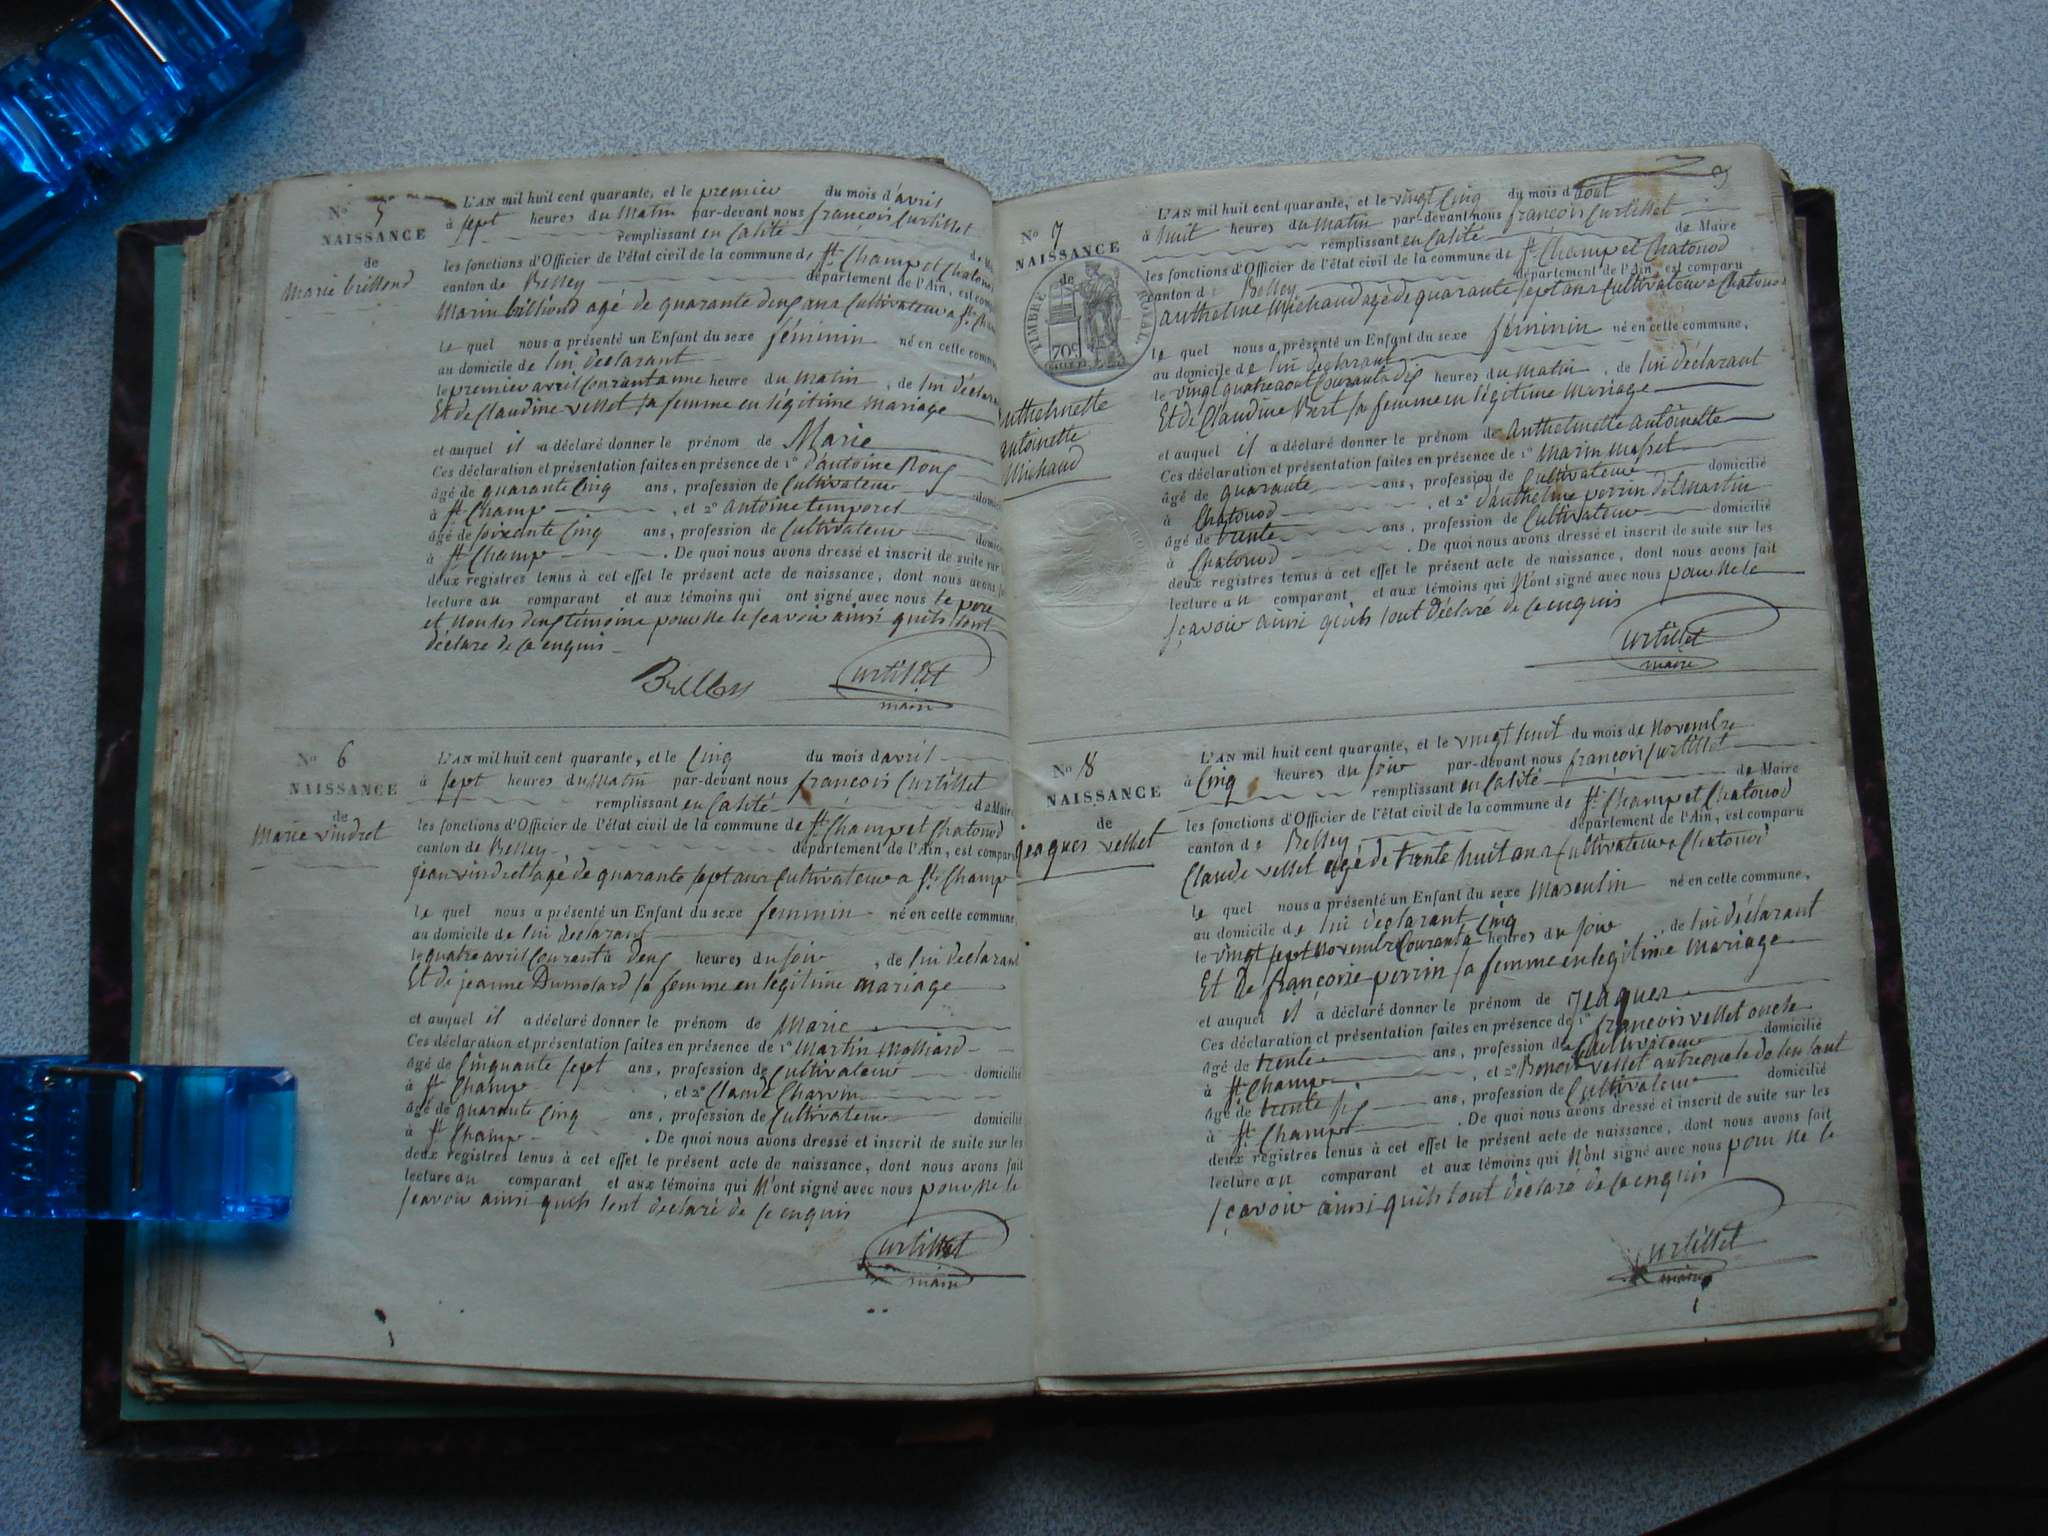 No 5
NAISSANCE
de
Marie brillond
L'AN mil huit cent quarante, et le premier du mois d'avril
à sept heures du Matin par-devant nous françois Curtillet
remplissant en Calité de
les fonctions d'Officier de l'état civil de la commune de St Champ et Chatonod
canton de Belley département de l'Ain, est
Marin billiond agé de quarante deux ans Cultivateur a St
le quel nous a présenté un Enfant du sexe féminin né en cette
au domicile de lui declarant
le premier avril Courant a une heure du Matin, de lui
Et de Claudine vellet sa femme en légitime Mariage
et auquel il a déclaré donner le prénom de Marie
Ces déclaration et présentation faites en présence de 1° d'antoine Roux
âgé de quarante Cinq ans, profession de Cultivateur
à St Champ, et 2° antoine temporel
âgé de soixante Cinq ans, profession de Cultivateur
à St Champ. De quoi nous avons dressé et inscrit de suite sur
deux registres tenus à cet effet le présent acte de naissance, dont nous avons
lecture au comparant et aux témoins qui ont signé avec nous le pere
et non les deux temoins pour ne le scavoir ainsi quils lont
déclare de ce enquis
Curtillet
maire
No 6
NAISSANCE
de
Marie vindret
L'AN mil huit cent quarante, et le Cinq du mois d'avril
à sept heures du Matin par-devant nous françois Curtillet
remplissant en Calité de Maire
les fonctions d'Officier de l'état civil de la commune de St Champ et Chatonod
canton de Belley département de l'Ain, est comparu
jean vindret agé de quarante sept ans Cultivateur a St Champ
le quel nous a présenté un Enfant du sexe feminin né en cette commune,
au domicile de lui declarant
le quatre avril Courant à deux heures du soir, de lui declarant
Et de jeanne Dumolard sa femme en légitime mariage
et auquel il a déclaré donner le prénom de Marie
Ces déclaration et présentation faites en présence de 1° Martin
âgé de Cinquante sept ans, profession de Cultivateur domicilié
à St Champ, et 2° Claude Charvin
âgé de quarante Cinq ans, profession de Cultivateur domicilié
à St Champ. De quoi nous avons dressé et inscrit de suite sur les
deux registres tenus à cet effet le présent acte de naissance, dont nous avons fait
lecture au comparant et aux témoins qui N'ont signé avec nous pour ne le
scavoir ainsi quils lont déclaré de ce enquis
Curtillet
maire
No 7
NAISSANCE
de
TIMBRE ROYAL
70c
anthelmette
antoinette
Michaud
L'AN mil huit cent quarante, et le vingt Cinq du mois d'août
à huit heures du matin par-devant nous françois Curtillet
remplissant en Calité de Maire
les fonctions d'Officier de l'état civil de la commune de St Champ et Chatonod
canton de Belley département de l'Ain, est comparu
anthelme Michaud agé de quarante sept ans Cultivateur a Chatonod
le quel nous a présenté un Enfant du sexe féminin né en cette commune,
au domicile de lui declarant
le vingt quatre août Courant a dix heures du matin, de lui déclarant
Et de Claudine sa femme en légitime Mariage
et auquel il a déclaré donner le prénom de anthelmette antoinette
Ces déclaration et présentation faites en présence de 1° Marin
âgé de quarante ans, profession de Cultivateur domicilié
à Chatonod, et 2° d'anthelme perrin de Martin
âgé de trente ans, profession de Cultivateur domicilié
à Chatonod. De quoi nous avons dressé et inscrit de suite sur les
deux registres tenus à cet effet le présent acte de naissance, dont nous avons fait
lecture au comparant et aux témoins qui N'ont signé avec nous pour ne le
scavoir ainsi quils lont déclaré de ce enquis
Curtillet
maire
No 8
NAISSANCE
de
jeaques vellet
L'AN mil huit cent quarante, et le vingt huit du mois de Novembre
à Cinq heures du soir par-devant nous françois Curtillet
remplissant en Calité de Maire
les fonctions d'Officier de l'état civil de la commune de St Champ et Chatonod
canton de Belley département de l'Ain, est comparu
Claude vellet agé de trente huit ans Cultivateur a Chatonod
le quel nous a présenté un Enfant du sexe Masculin né en cette commune,
au domicile de lui declarant
le vingt sept Novembre Courant a Cinq heures du soir, de lui déclarant
Et de françoise perrin sa femme en légitime Mariage
et auquel il a déclaré donner le prénom de jeaques
Ces déclaration et présentation faites en présence de 1° françois vellet oncle
âgé de trente ans, profession de Cultivateur domicilié
à St Champ, et 2° Benoit vellet autre oncle de lenfant
âgé de trente six ans, profession de Cultivateur domicilié
à St Champ. De quoi nous avons dressé et inscrit de suite sur les
deux registres tenus à cet effet le présent acte de naissance, dont nous avons fait
lecture au comparant et aux témoins qui N'ont signé avec nous pour ne le
scavoir ainsi quils lont déclaré de ce enquis
Curtillet
maire